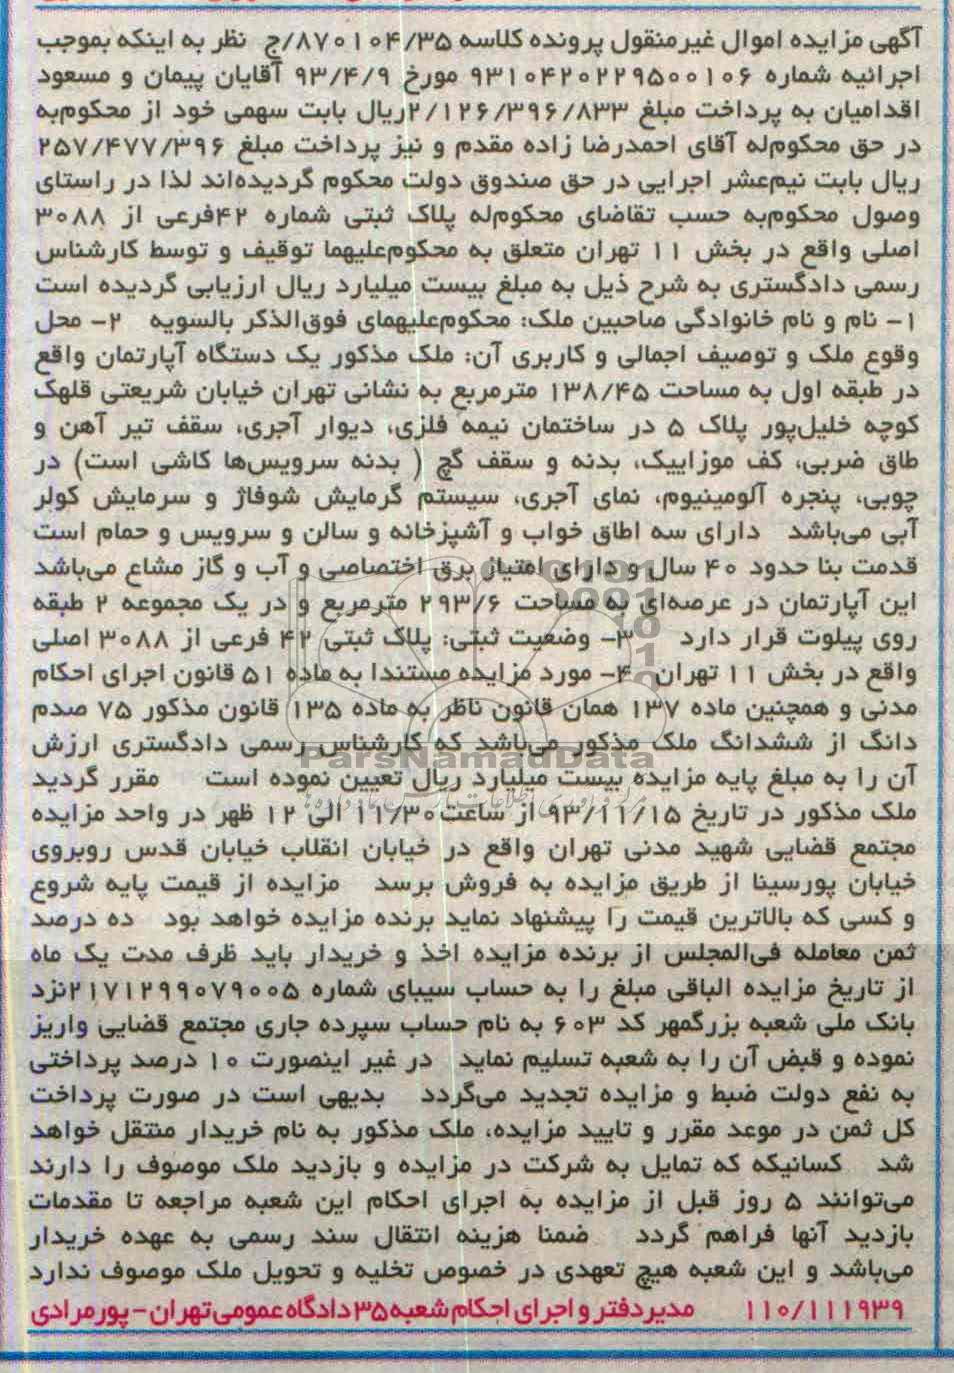 آگهی مزایده اموال غیرمنقول پرونده کلاسه ۸۷۰۱۰۴/۳۵/ج نظر به اینکه بموجب
اجرائیه شماره ۹۳۱۰۴۲۰۲۲۹۵۰۰۱۰۶ مورخ ۹۳/۴/۹ آقایان پیمان و مسعود
اقدامیان به پرداخت مبلغ ۲/۱۲۶/۳۹۶/۸۳۳ریال بابت سهمی خود از محکوم‌به
در حق محکوم‌له آقای احمدرضا زاده مقدم و نیز پرداخت مبلغ ۲۵۷/۴۷۷/۳۹۶
ریال بابت نیم‌عشر اجرایی در حق صندوق دولت محکوم گردیده‌اند لذا در راستای
وصول محکوم‌به حسب تقاضای محکوم‌له پلاک ثبتی شماره ۴۲فرعی از ۳۰۸۸
اصلی واقع در بخش ۱۱ تهران متعلق به محکوم‌علیهما توقیف و توسط کارشناس
رسمی دادگستری به شرح ذیل به مبلغ بیست میلیارد ریال ارزیابی گردیده است
۱- نام و نام خانوادگی صاحبین ملک: محکوم‌علیهمای فوق‌الذکر بالسویه ۲- محل
وقوع ملک و توصیف اجمالی و کاربری آن: ملک مذکور یک دستگاه آپارتمان واقع
در طبقه اول به مساحت ۱۳۸/۴۵ مترمربع به نشانی تهران خیابان شریعتی قلهک
کوچه خلیل‌پور پلاک ۵ در ساختمان نیمه فلزی، دیوار آجری، سقف تیر آهن و
طاق ضربی، کف موزاییک، بدنه و سقف گچ ( بدنه سرویس‌ها کاشی است) در
چوبی، پنجره آلومینیوم، نمای آجری، سیستم گرمایش شوفاژ و سرمایش کولر
آبی می‌باشد دارای سه اطاق خواب و آشپزخانه و سالن و سرویس و حمام است
قدمت بنا حدود ۴۰ سال و دارای امتیاز برق اختصاصی و آب و گاز مشاع می‌باشد
این آپارتمان در عرصه‌ای به مساحت ۲۹۳/۶ مترمربع و در یک مجموعه ۲ طبقه
روی پیلوت قرار دارد ۳- وضعیت ثبتی: پلاک ثبتی ۴۲ فرعی از ۳۰۸۸ اصلی
واقع در بخش ۱۱ تهران ۴- مورد مزایده مستندا به ماده ۵۱ قانون اجرای احکام
مدنی و همچنین ماده ۱۳۷ همان قانون ناظر به ماده ۱۳۵ قانون مذکور ۷۵ صدم
دانگ از ششدانگ ملک مذکور می‌باشد که کارشناس رسمی دادگستری ارزش
ParsNamadData
آن را به مبلغ پایه مزایده بیست میلیارد ریال تعیین نموده است مقرر گردید
ملک مذکور در تاریخ ۹۳/۱۱/۱۵ از ساعت۱۱/۳۰ الی ۱۲ ظهر در واحد مزایده
مجتمع قضایی شهید مدنی تهران واقع در خیابان انقلاب خیابان قدس روبروی
خیابان پورسینا از طریق مزایده به فروش برسد مزایده از قیمت پایه شروع
و کسی که بالاترین قیمت را پیشنهاد نماید برنده مزایده خواهد بود ده درصد
ثمن معامله فی‌المجلس از برنده مزایده اخذ و خریدار باید ظرف مدت یک ماه
از تاریخ مزایده الباقی مبلغ را به حساب سیبای شماره ۲۱۷۱۲۹۹۰۷۹۰۰۵نزد
بانک ملی شعبه بزرگمهر کد ۶۰۳ به نام حساب سپرده جاری مجتمع قضایی واریز
نموده و قبض آن را به شعبه تسلیم نماید در غیر اینصورت ۱۰ درصد پرداختی
به نفع دولت ضبط و مزایده تجدید می‌گردد بدیهی است در صورت پرداخت
کل ثمن در موعد مقرر و تایید مزایده، ملک مذکور به نام خریدار منتقل خواهد
شد کسانیکه که تمایل به شرکت در مزایده و بازدید ملک موصوف را دارند
می‌توانند ۵ روز قبل از مزایده به اجرای احکام این شعبه مراجعه تا مقدمات
بازدید آنها فراهم گردد ضمنا هزینه انتقال سند رسمی به عهده خریدار
می‌باشد و این شعبه هیچ تعهدی در خصوص تخلیه و تحویل ملک موصوف ندارد
۱۱۰/۱۱۱۹۳۹ مدیردفتر و اجرای احکام شعبه ۳۵ دادگاه عمومی تهران - پورمرادی